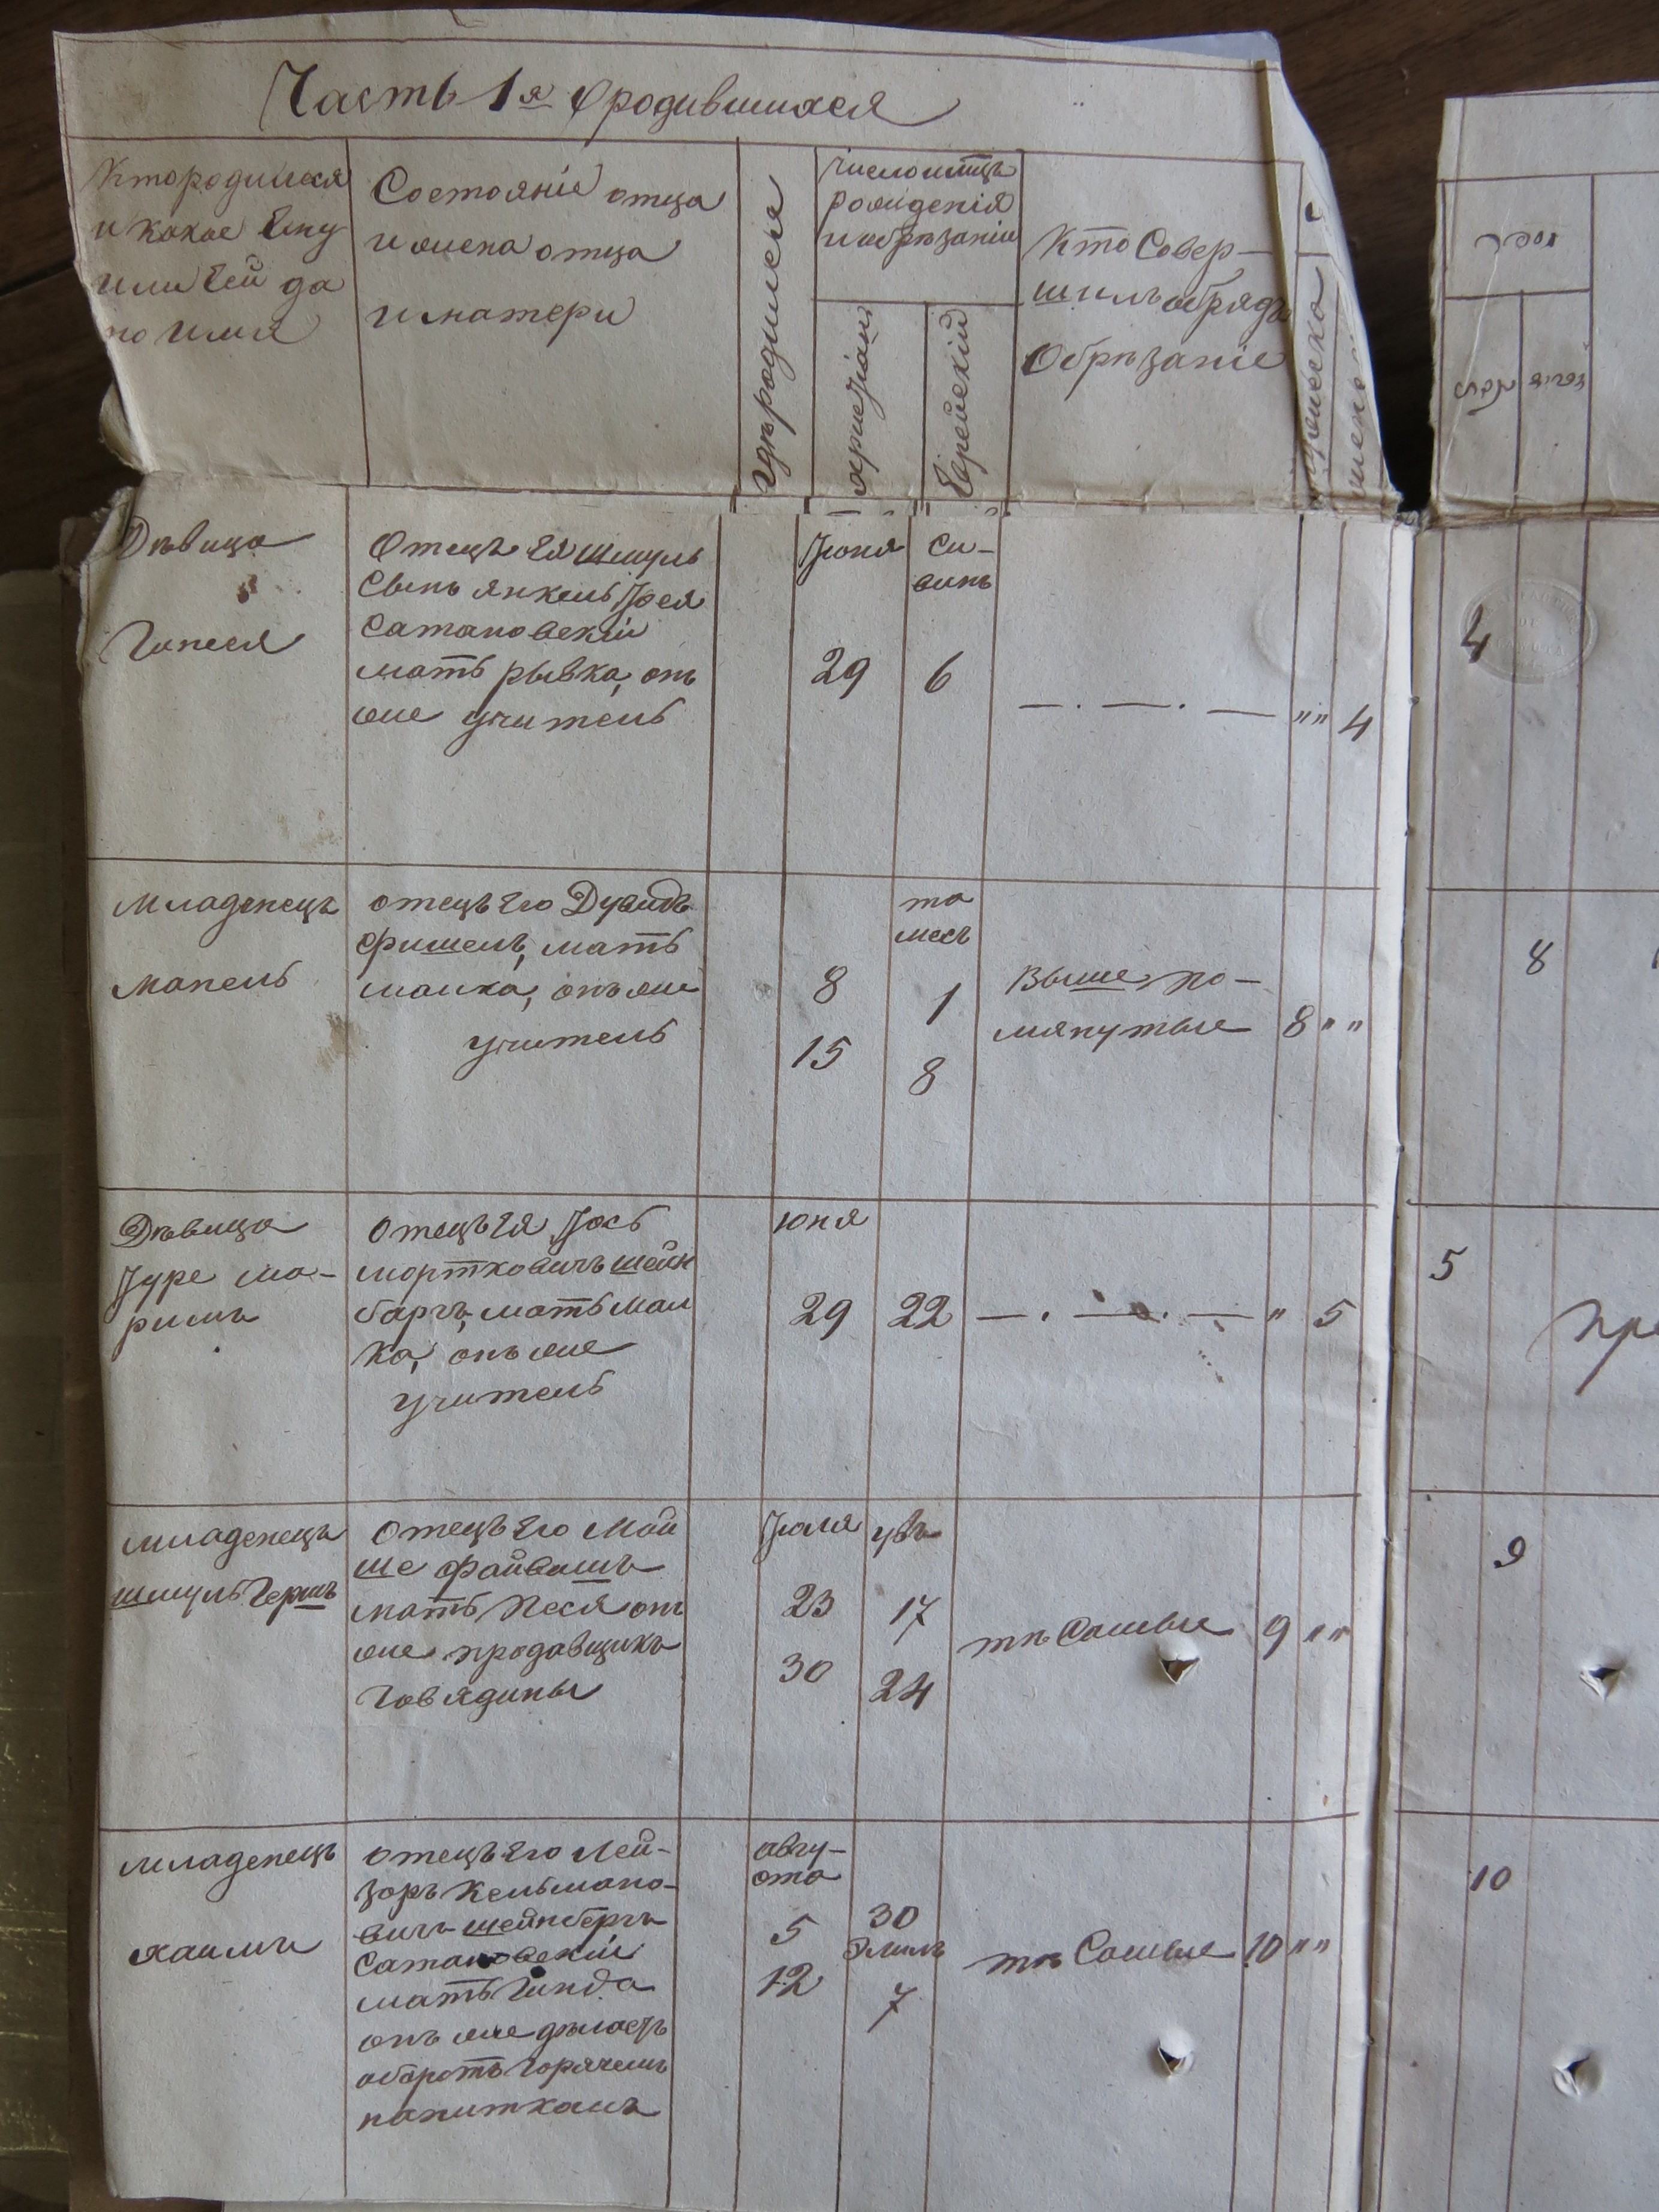 Часть 1я о родившихся
Кто родился
и какое Ему
или Ей да
но имя
Состояніе отца
и имена отца
и матери
гдѣ родился
число и мѣць
рожденія
и обрѣзанія
христіан
Еврейскій
Кто Совер-
шилъ обрядъ
Обрѣзаніе
Дѣвица
Гинеся
Отецъ Ея Шмуль
Сынъ Янкель Іосея
Сатановскій
мать рывка, онъ
же учитель
Іюня
29
Си-
ванъ
6
— . — . —
"" 4
4
Младенецъ
Манель
отецъ Его Дувидъ
Фишель, мать
малка, онъ же
учитель
8
15
та
месъ
1
8
Выше по-
мянутые
8 " "
8
Дѣвица
Іуре ма-
римъ
отецъ Ея Іось
мортковичъ шейн
баргъ, мать мал
ка, онъ же
учитель
юня
29
22
— . — . —
" 5
5
Младенецъ
шмуль Гершъ
отецъ Его Мой
ше Файвишъ
мать Песя онъ
же продавщикъ
Говядины
Іюля
23
30
увъ
17
24
тѣ Самые
9 " "
9
Младенецъ
хаимъ
отецъ Его Лей-
зоръ Кельмано-
вичъ шейнбергъ
Сатановскій
мать Гинда
онъ же дѣлаетъ
оборотъ Горячемъ
напиткамъ
авгу-
ста
5
12
30
Элилъ
7
тѣ Самые
10 " "
10